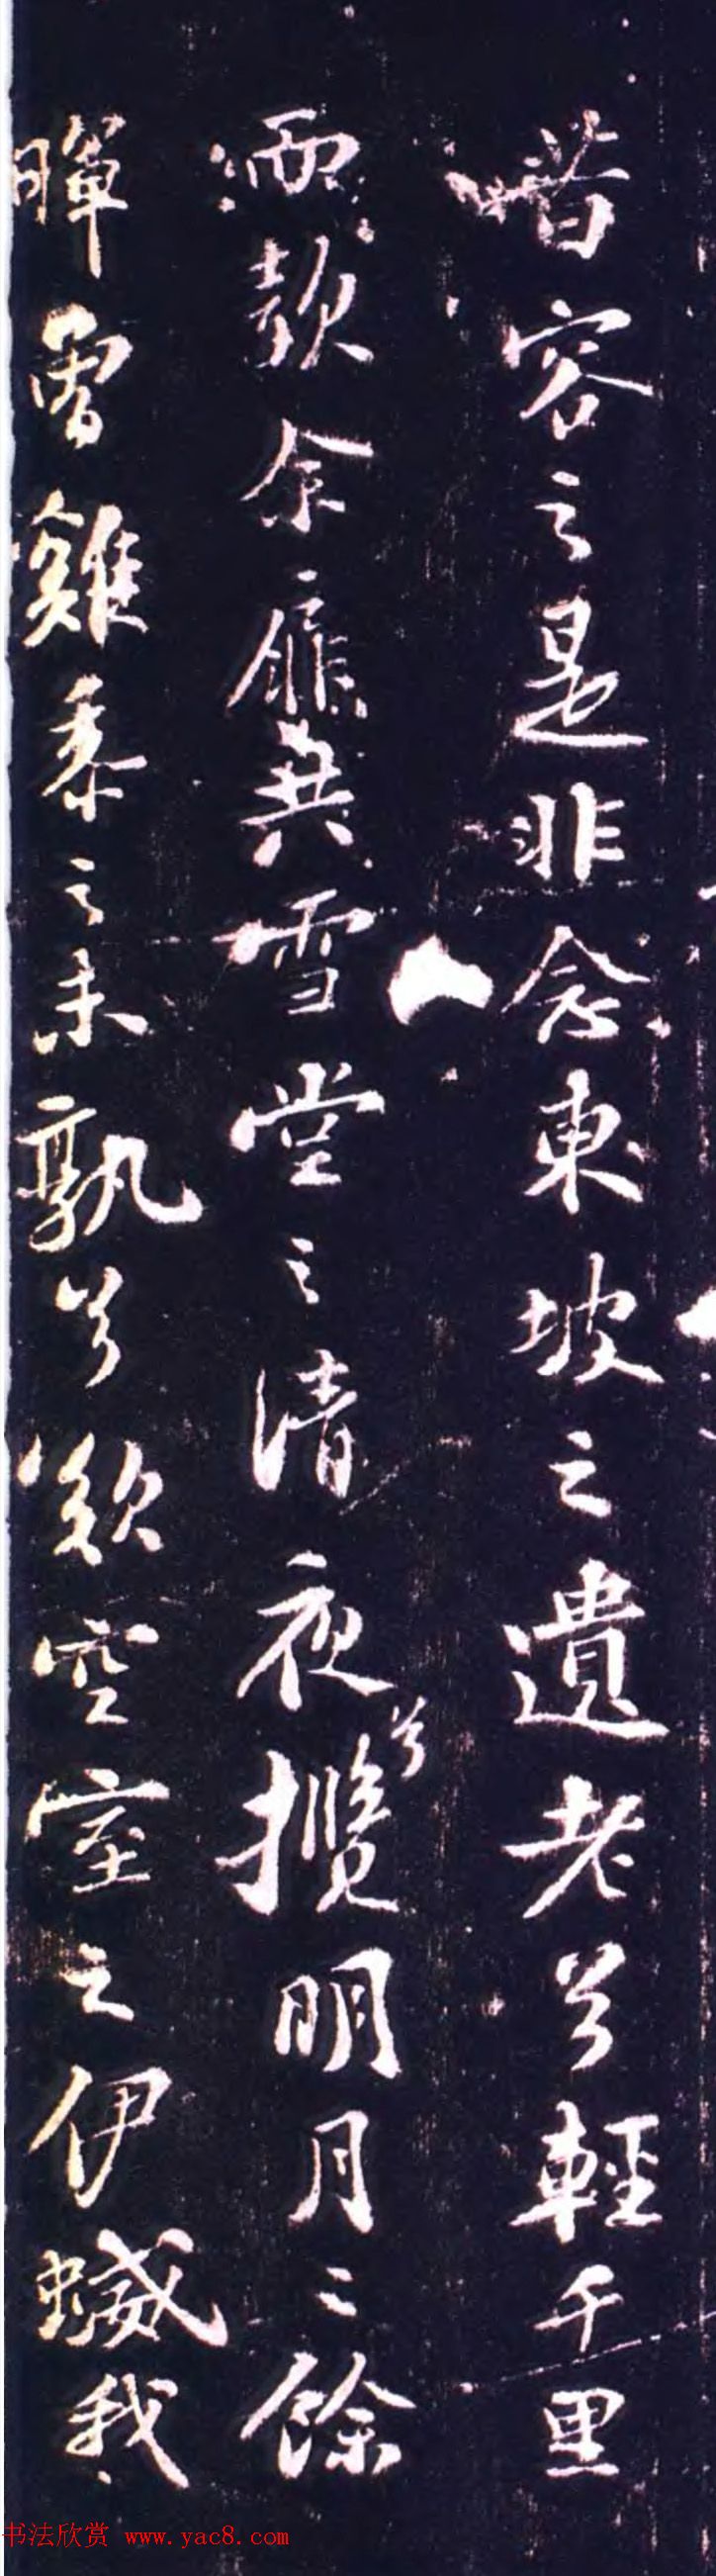 昔容之是非念東坡之遺老兮輕千里
而款余扉共雪堂之清夜兮攬明月之餘
暉曾雞黍之未孰兮歎空室之伊蛜我
书法欣赏 www.yac8.com